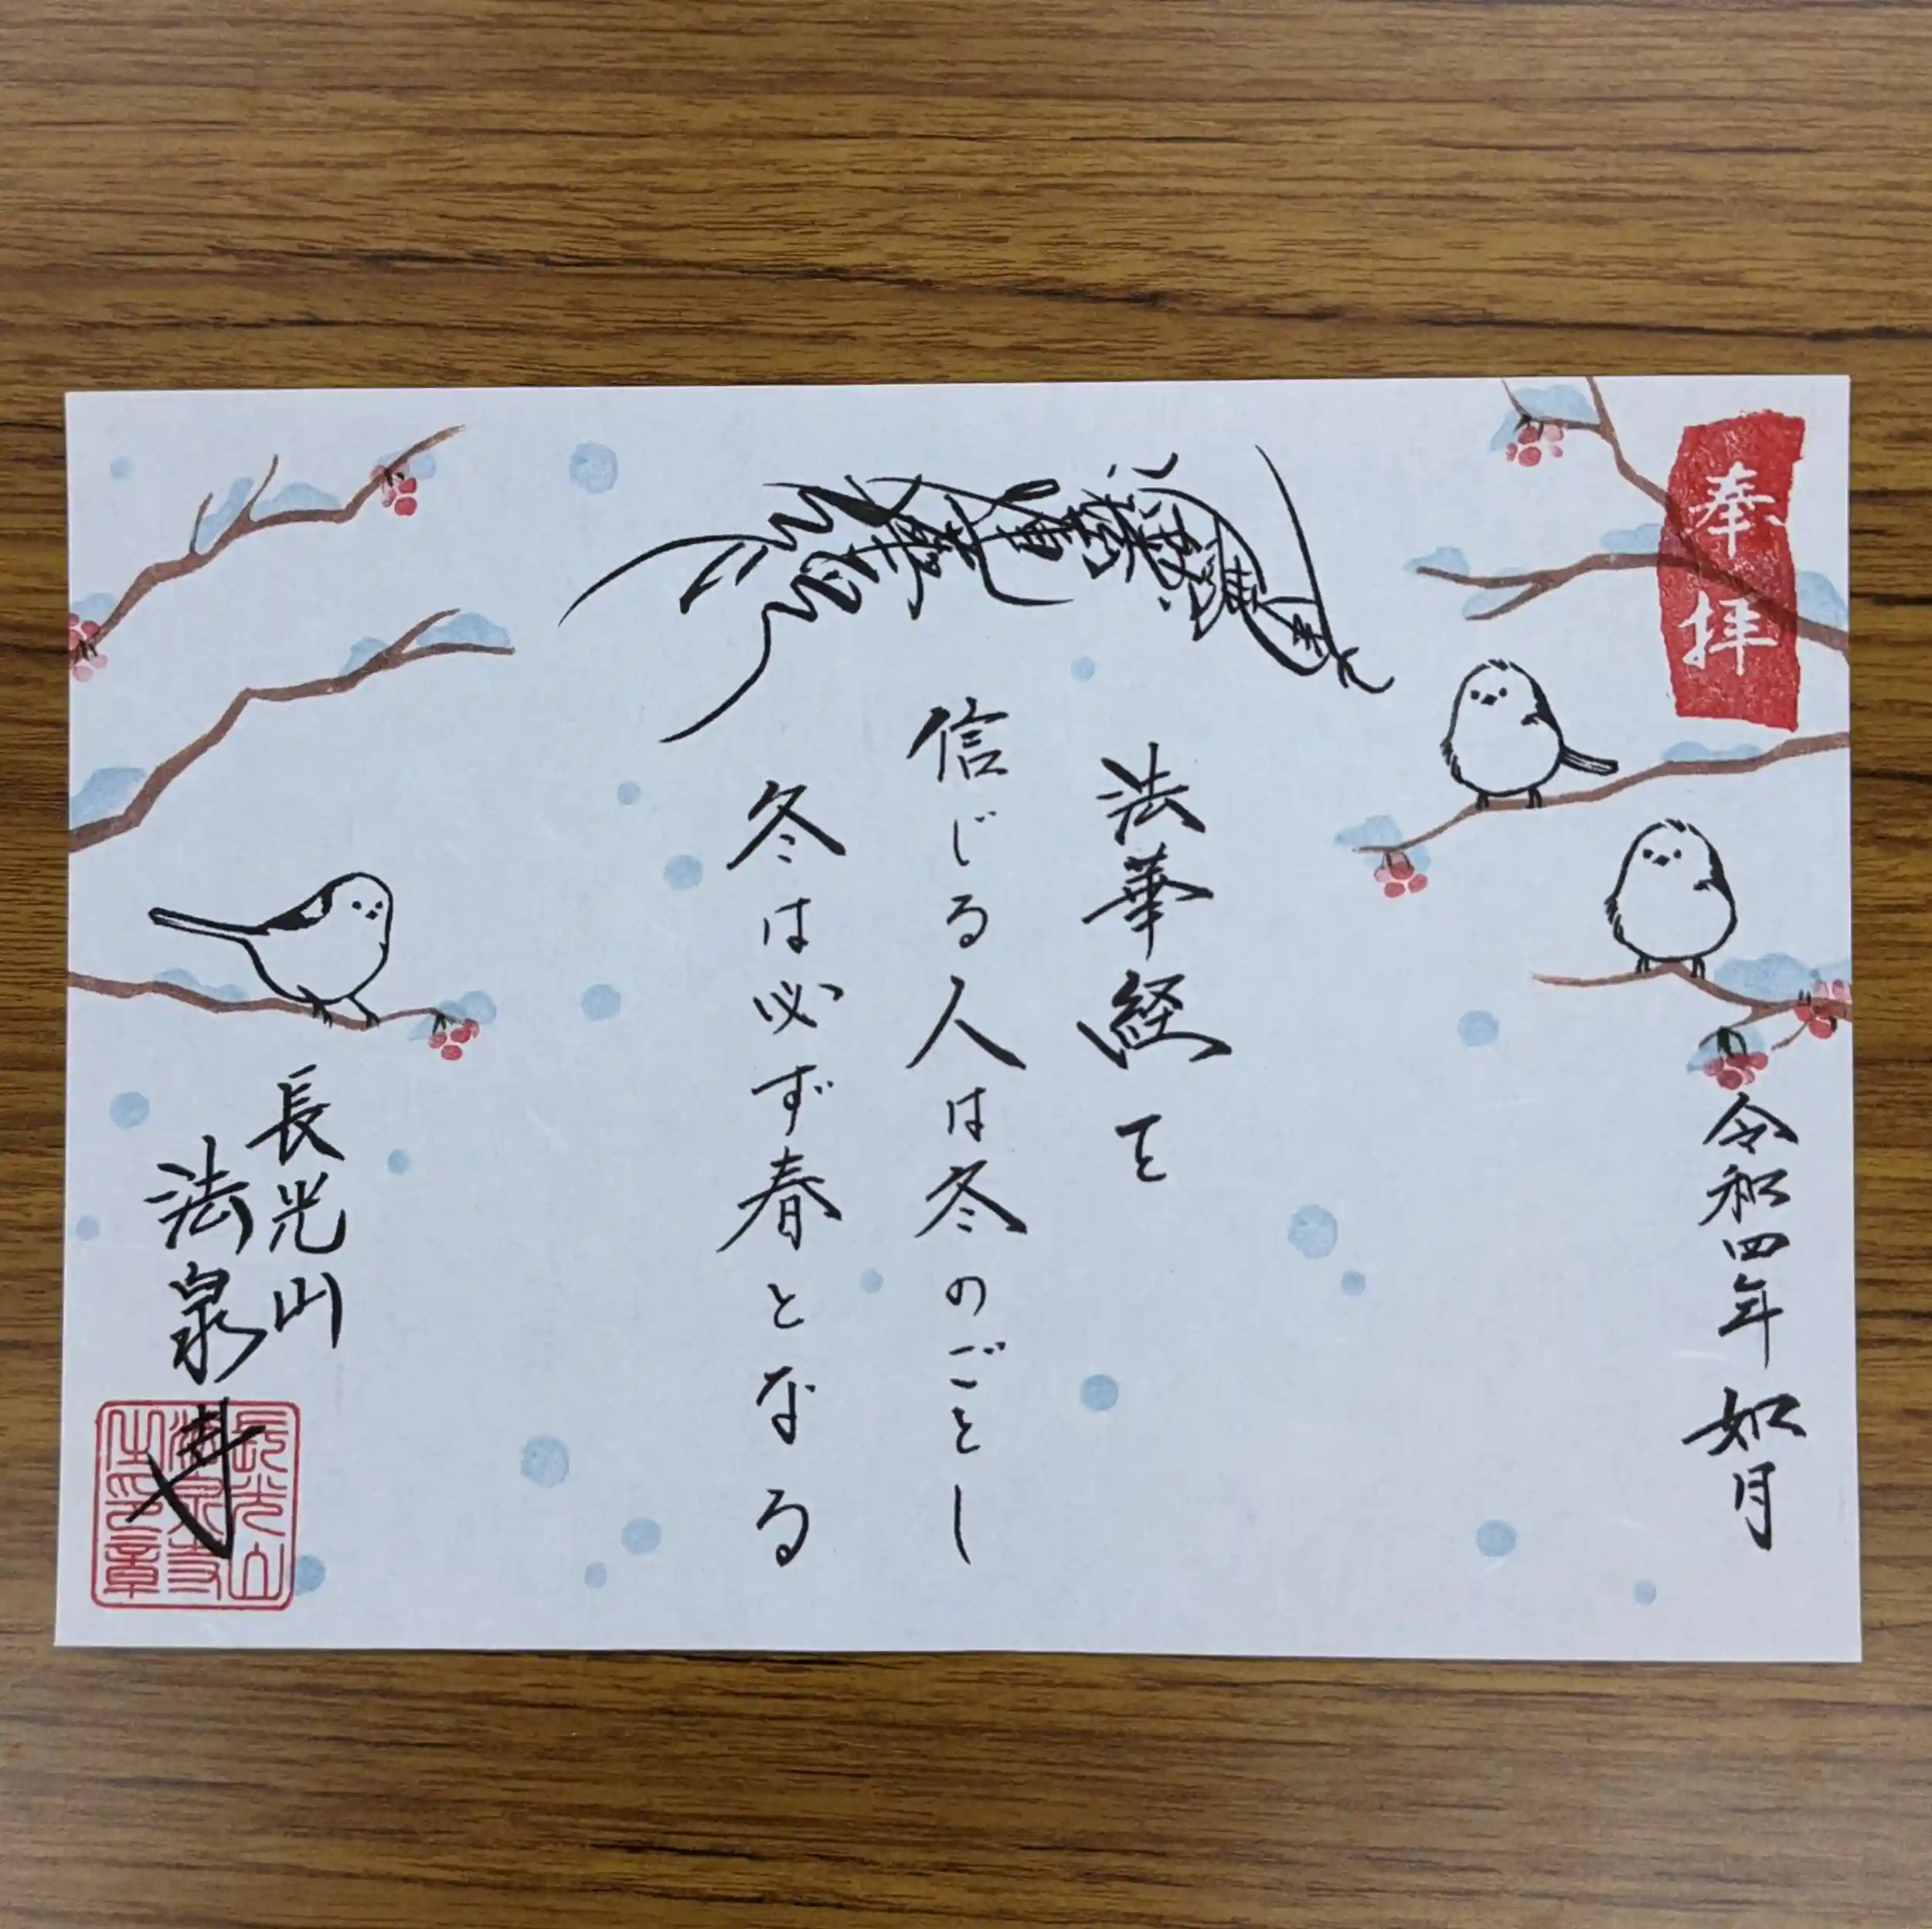 奉拝
令和四年 如月
南無妙法蓮華経
法華経を
信じる人は冬のごとし
冬は必ず春となる
長光山
法泉寺
長光山
法泉寺